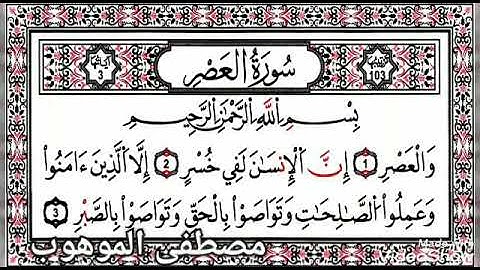 آياتها 3
سُورَةُ العَصْرِ
ترتيبها 103
بِسْمِ اللَّهِ الرَّحْمَٰنِ الرَّحِيمِ
وَالْعَصْرِ 1 إِنَّ الْإِنسَٰنَ لَفِي خُسْرٍ 2 إِلَّا الَّذِينَ ءَامَنُوا۟
وَعَمِلُوا۟ الصَّٰلِحَٰتِ وَتَوَاصَوْا۟ بِالْحَقِّ وَتَوَاصَوْا۟ بِالصَّبْرِ 3
مصطفى الموهوب